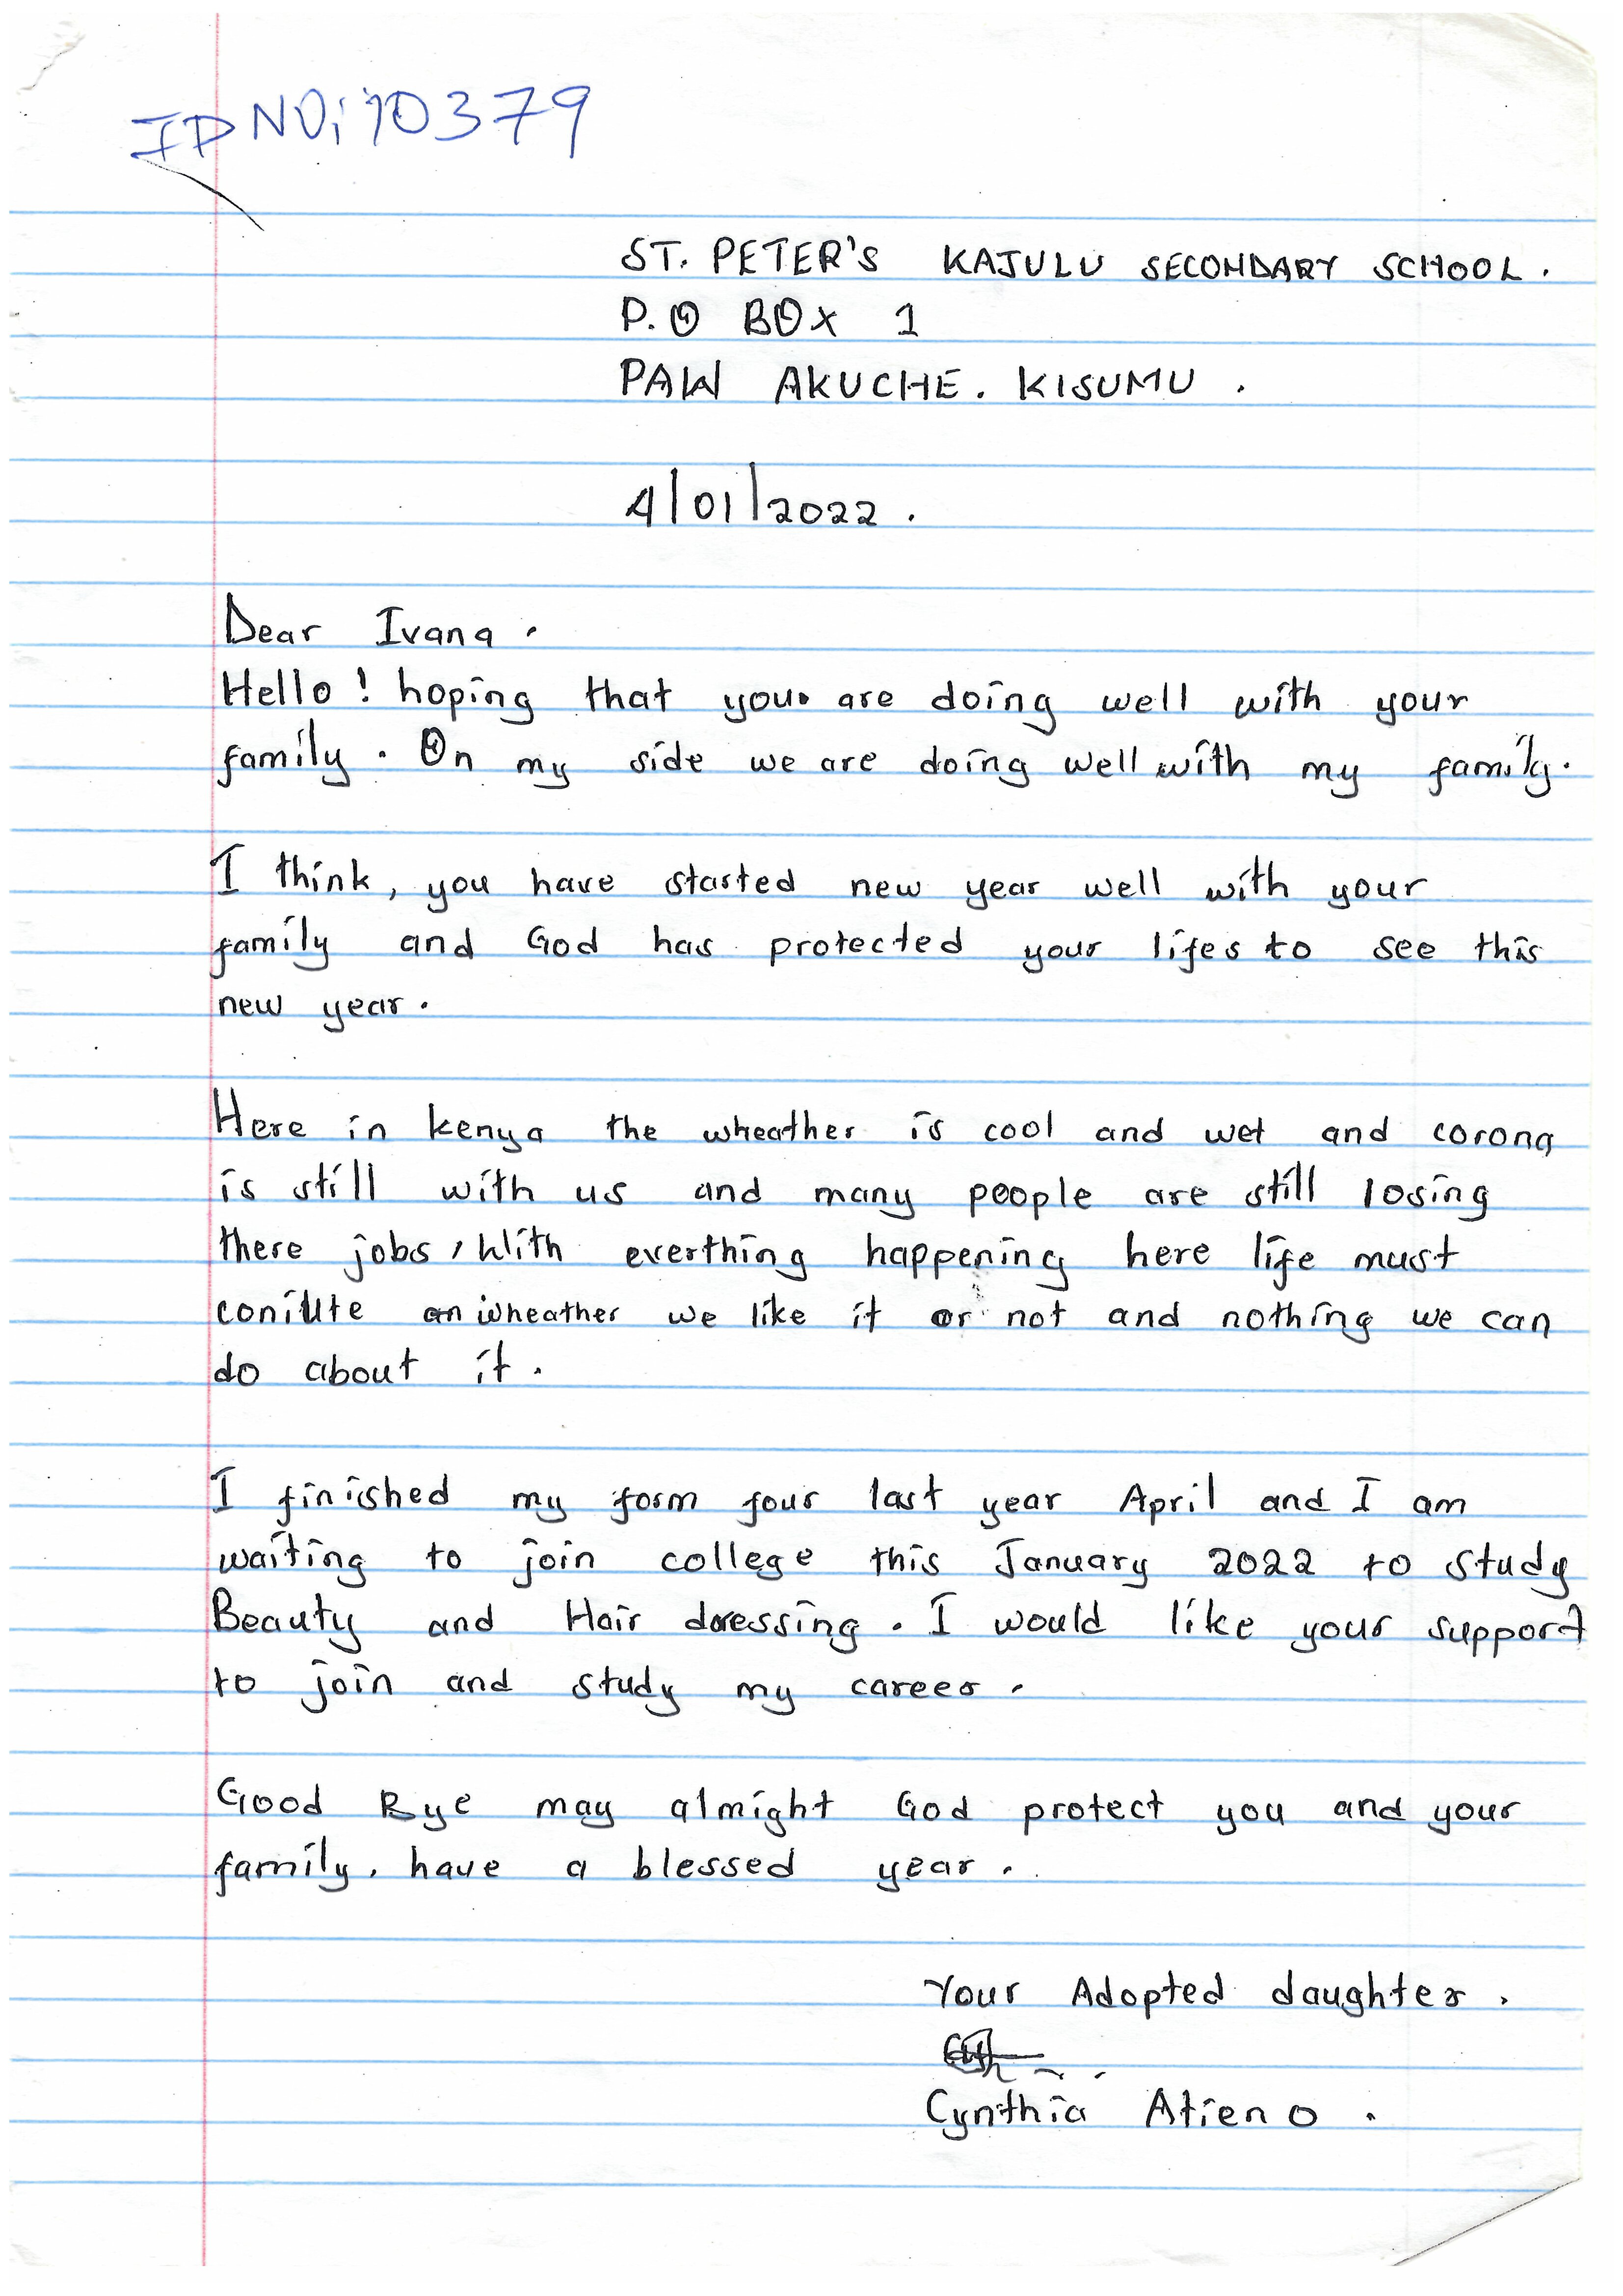 ID NO: 10379
ST. PETER'S KAJULU SECONDARY SCHOOL.
P.O BOX 1
PAW AKUCHE. KISUMU.
4/01/2022.
Dear Ivana.
Hello! hoping that you are doing well with your
family. On my side we are doing well with my family.
I think, you have started new year well with your
family and God has protected your lifes to see this
new year.
Here in kenya the wheather is cool and wet and corona
is still with us and many people are still losing
there jobs, With everthing happening here life must
wheather we like it or not and nothing we can
do about it.
I finished my form four last year April and I am
waiting to join college this January 2022 to study
Beauty and Hair dressing. I would like your support
to join and study my career.
Good Bye may almight God protect you and your
family. have a blessed year.
Your Adopted daughter.
Cynthia Atieno.